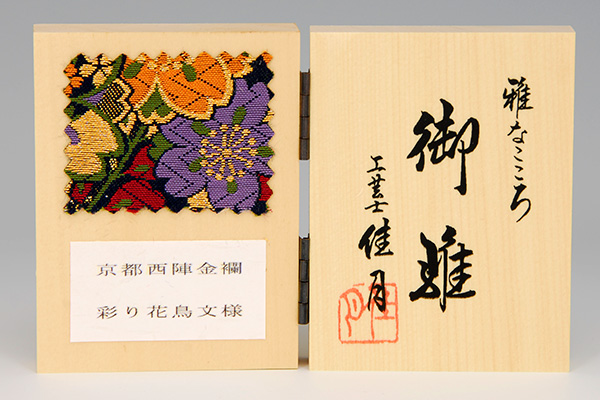 京都西陣金襴
彩り花鳥文様
雅なこころ
御雛
工芸士 佳月
佳月